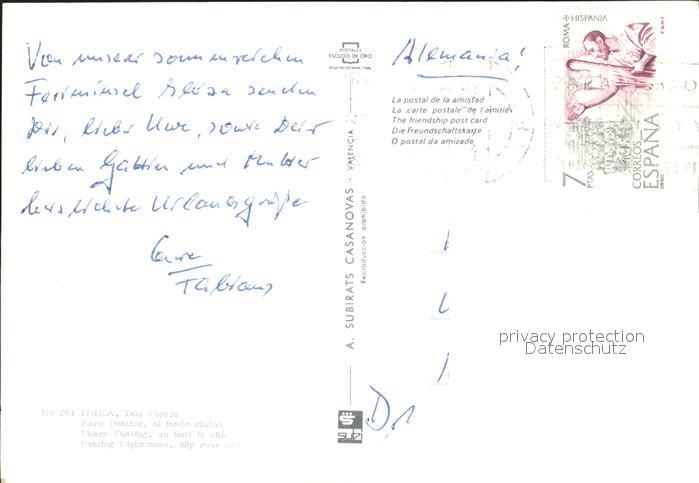 Von unserer sonnenreichen
Ferieninsel Ibiza senden
Dir, lieber Uwe, sowie Deiner
lieben Gattin und Mutter
herzlichste Urlaubsgrüße
Eure
Fabians
Nº 261 IBIZA, Isla Blanca
Faro Botafog, al fondo ciudad
Phare Botafog, au fond la cité
Botafog Lighthouse, city rear end
POSTALES
ESCUDO DE ORO
A. SUBIRATS CASANOVAS - VALENCIA
Reproducción prohibida
Alemania!
La postal de la amistad
La carte postale de l'amitié
The friendship post card
Die Freundschaftskarte
O postal da amizade
D
ROMA + HISPANIA
F.N.M.T.
7 PTAS
CORREOS
ESPAÑA
privacy protection
Datenschutz